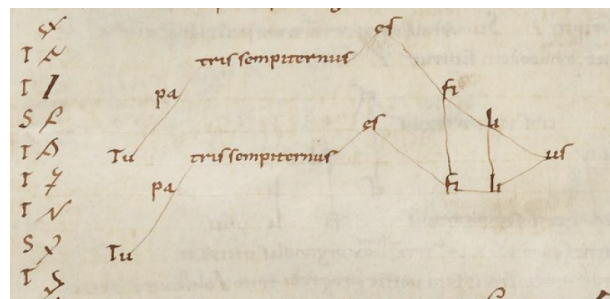 T
T I
S
T
T
T
S
T
Tu pa tris sempiternus es fi li us
Tu pa tris sempiternus es fi li